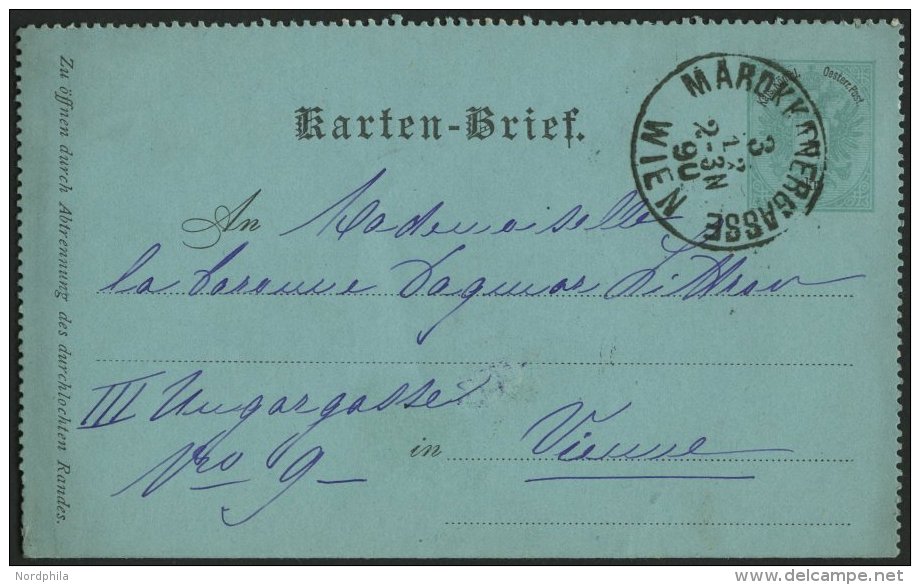 Karten-Brief.
MAROKKANERGASSE
WIEN
3
12
2-3N
90
Oesterr. Post
An Mademoiselle
la baronne Dagmar Littrow
III Ungargasse
Nro 9
in Vienne
Zu öffnen durch Abtrennung des durchlochten Randes.
Nordphila
www.delcampe.net